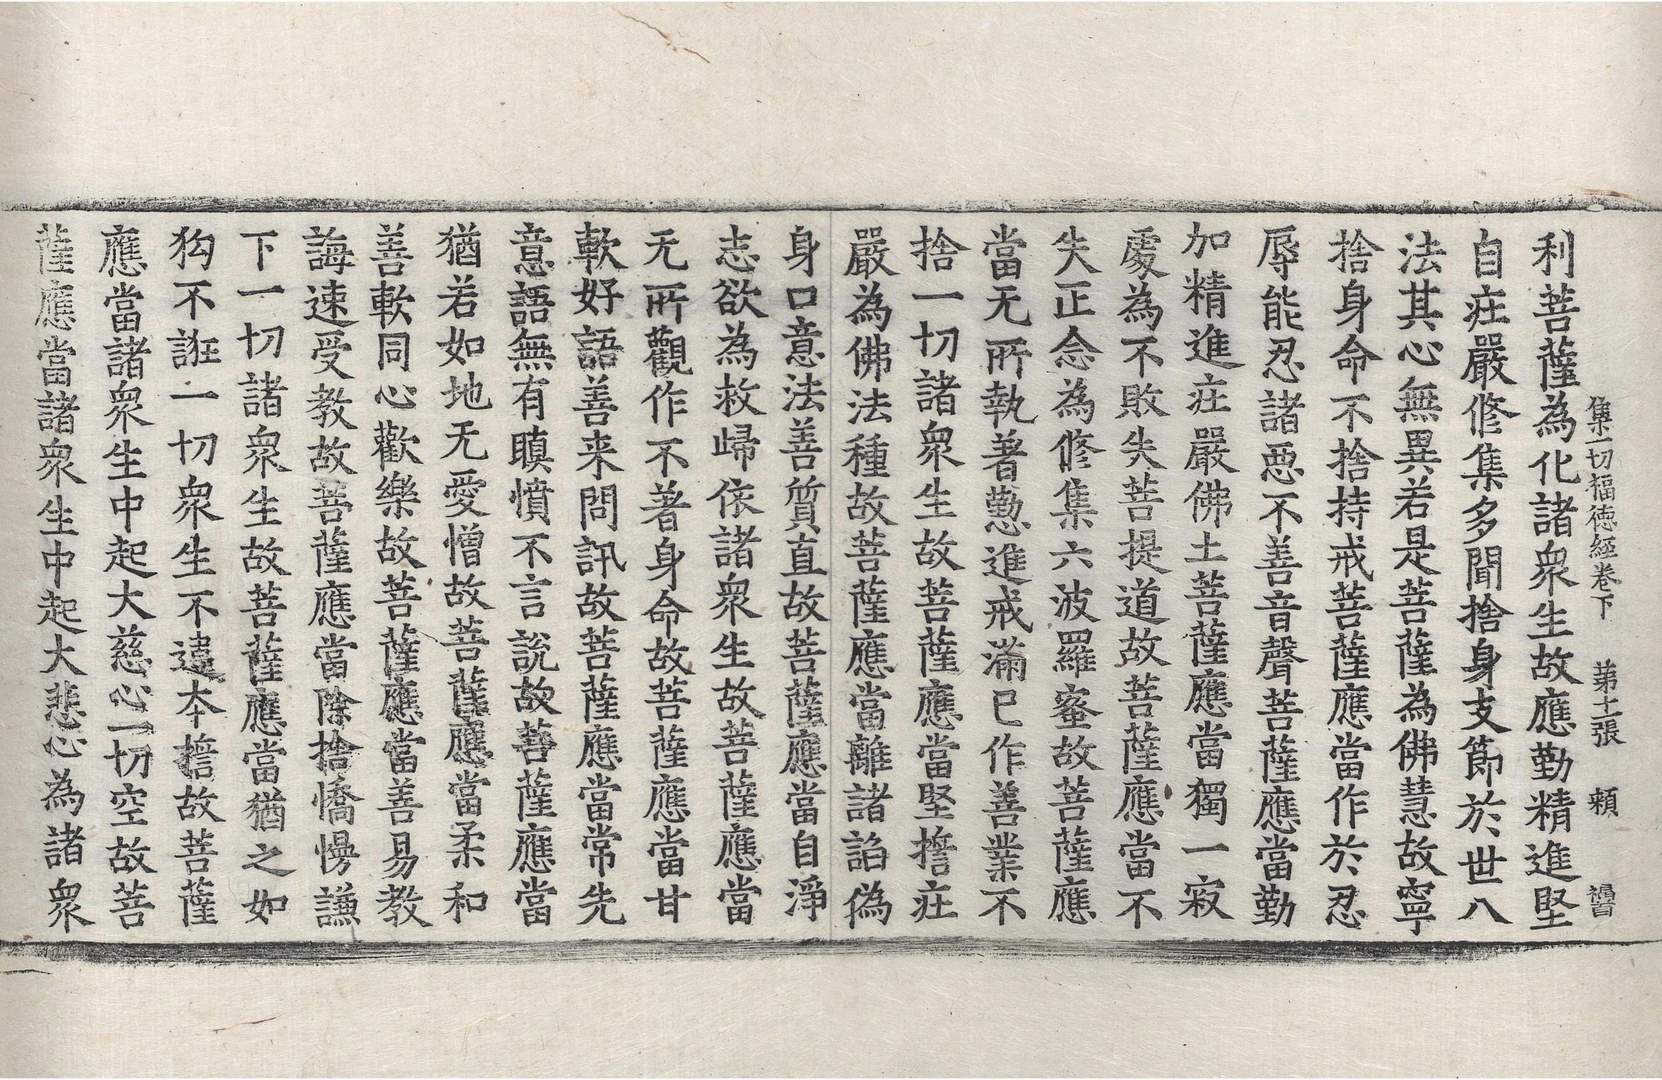 集一切福徳經卷下　第十二張　頼
利菩薩為化諸衆生故應勤精進堅
自㽵嚴修集多聞捨身支節於世八
法其心無異若是菩薩為佛慧故寧
捨身命不捨持戒菩薩應當作於忍
辱能忍諸惡不善音聲菩薩應當勤
加精進㽵嚴佛土菩薩應當獨一寂
處為不敗失菩提道故菩薩應當不
失正念為修集六波羅蜜故菩薩應
當无所執著懃進戒滿已作善業不
捨一切諸衆生故菩薩應當堅誓㽵
嚴為佛法種故菩薩應當離諸諂偽
身口意法善質直故菩薩應當自淨
志欲為救歸依諸衆生故菩薩應當
无所觀作不著身命故菩薩應當甘
軟好語善来問訊故菩薩應當常先
意語無有瞋憤不言說故菩薩應當
猶若如地无愛憎故菩薩應當柔和
善軟同心歡樂故菩薩應當善易教
誨速受教故菩薩應當除捨憍慢謙
下一切諸衆生故菩薩應當猶之如
狗不誑一切衆生不違本誓故菩薩
應當諸衆生中起大慈心一切空故菩
薩應當諸衆生中起大悲心為諸衆